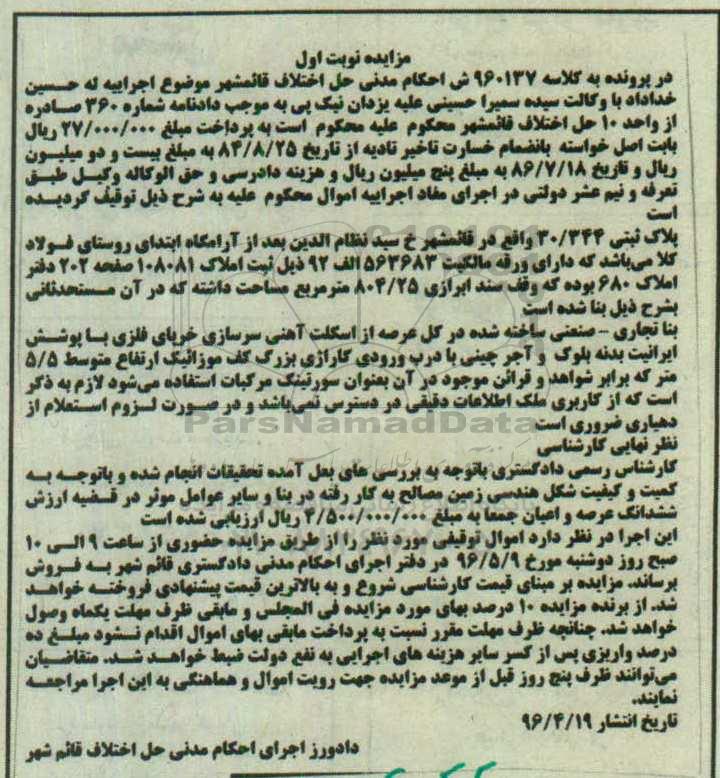 مزایده نوبت اول
در پرونده به کلاسه ۹۶۰۱۳۷ ش احکام مدنی حل اختلاف قائمشهر موضوع اجراییه له حسین
خداداد با وکالت سیده سمیرا حسینی علیه یزدان نیک پی به موجب دادنامه شماره ۳۶۰ صادره
از واحد ۱۰ حل اختلاف قائمشهر محکوم علیه محکوم است به پرداخت مبلغ ۲۷/۰۰۰/۰۰۰ ریال
بابت اصل خواسته بانضمام خسارت تاخیر تادیه از تاریخ ۸۴/۸/۲۵ به مبلغ بیست و دو میلیون
ریال و تاریخ ۸۶/۷/۱۸ به مبلغ پنج میلیون ریال و هزینه دادرسی و حق الوکاله وکیل طبق
تعرفه و نیم عشر دولتی در اجرای مفاد اجراییه اموال محکوم علیه به شرح ذیل توقیف گردیده
است
پلاک ثبتی ۳۰/۳۴۴ واقع در قائمشهر خ سید نظام الدین بعد از آرامگاه ابتدای روستای فولاد
کلا می‌باشد که دارای ورقه مالکیت ۵۶۳۶۸۳ الف ۹۲ ذیل ثبت املاک ۱۰۸۰۸۱ صفحه ۲۰۲ دفتر
املاک ۶۸۰ بوده که وقف سند ابرازی ۸۰۴/۲۵ مترمربع مساحت داشته که در آن مستحدثاتی
بشرح ذیل بنا شده است
بنا تجاری - صنعتی ساخته شده در کل عرصه از اسکلت آهنی سرسازی خرپای فلزی با پوشش
ایرانیت بدنه بلوک و آجر چینی با درب ورودی گاراژی بزرگ کف موزائیک ارتفاع متوسط ۵/۵
متر که برابر شواهد و قرائن موجود در آن بعنوان سورتینگ مرکبات استفاده می‌شود لازم به ذکر
است که از کاربری ملک اطلاعات دقیقی در دسترس نمی‌باشد و در صورت لزوم استعلام از
دهیاری ضروری است
ParsNamadData
نظر نهایی کارشناسی
کارشناس رسمی دادگستری باتوجه به بررسی های بعل آمده تحقیقات انجام شده و باتوجه به
کمیت و کیفیت شکل هندسی زمین مصالح به کار رفته در بنا و سایر عوامل موثر در قضیه ارزش
ششدانگ عرصه و اعیان جمعا به مبلغ ۴/۵۰۰/۰۰۰/۰۰۰ ریال ارزیابی شده است
این اجرا در نظر دارد اموال توقیفی مورد نظر را از طریق مزایده حضوری از ساعت ۹ الی ۱۰
صبح روز دوشنبه مورخ ۹۶/۵/۹ در دفتر اجرای احکام مدنی دادگستری قائم شهر به فروش
برساند. مزایده بر مبنای قیمت کارشناسی شروع و به بالاترین قیمت پیشنهادی فروخته خواهد
شد. از برنده مزایده ۱۰ درصد بهای مورد مزایده فی المجلس و مابقی ظرف مهلت یکماه وصول
خواهد شد. چنانچه ظرف مهلت مقرر نسبت به پرداخت مابقی بهای اموال اقدام نشود مبلغ ده
درصد واریزی پس از کسر سایر هزینه های اجرایی به نفع دولت ضبط خواهد شد. متقاضیان
می‌توانند ظرف پنج روز قبل از موعد مزایده جهت رویت اموال و هماهنگی به این اجرا مراجعه
نمایند.
تاریخ انتشار ۹۶/۴/۱۹
دادورز اجرای احکام مدنی حل اختلاف قائم شهر